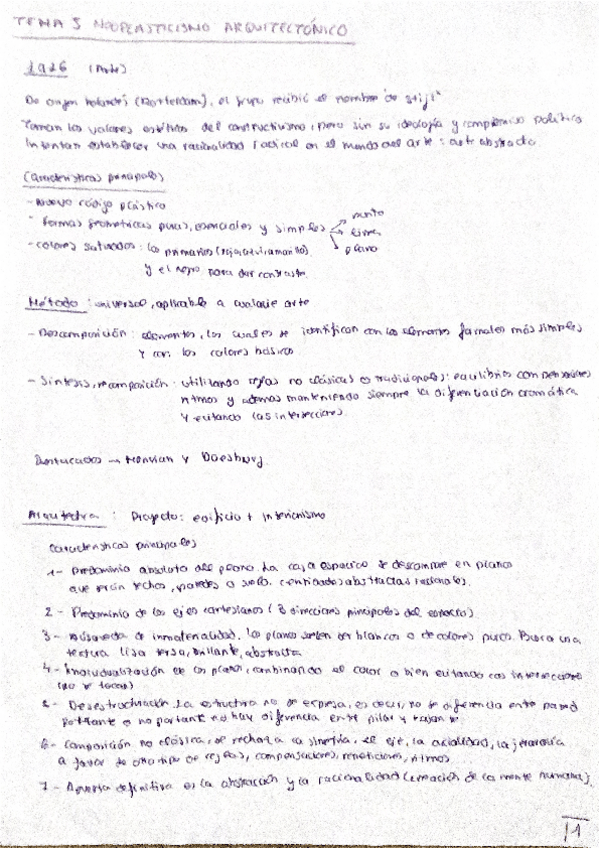 TEMA 5 NEOPLASTICISMO ARQUITECTÓNICO
1926 (Arte)
De origen holandés (Rotterdam), el grupo recibió el nombre de stijl
Toman los valores estéticos del constructivismo, pero sin su ideología y compromiso político
Intentan establecer una racionalidad radical en el mundo del arte: arte abstracto
Características principales
- Nuevo código plástico
- Formas geométricas puras, esenciales y simples → punto
línea
plano
- colores saturados: los primarios (rojo, azul y amarillo)
y el negro para dar contraste.
Método: universal, aplicable a cualquier arte
- Descomposición: elementos, los cuales se identifican con los elementos formales más simples
y con los colores básicos
- Síntesis, recomposición: utilizando reglas no clásicas o tradicionales: equilibrios compensaciones
ritmos y además manteniendo siempre la diferenciación cromática
y evitando las intersecciones.
Destacados → Mondrian y Doesburg.
Arquitectura: Proyecto: edificio + interiorismo
características principales
1- Predominio absoluto del plano. La caja espacial se descompone en planos
que serán techos, paredes o suelo. abstractas racionales.
2- Predominio de los ejes cartesianos (3 direcciones principales del espacio).
3- Búsqueda de inmaterialidad, los planos suelen ser blancos o de colores puros. Busca una
textura lisa, tersa, brillante, abstracta
4- Individualización de los planos, combinando el color o bien evitando las intersecciones
(no se tocan)
5- Desestructuración. La estructura no se expresa, es decir, no se diferencia entre pared
portante o no portante no hay diferencia entre pilar y
6- Composición no clásica, se rechaza la simetría, el eje, la axialidad, la jerarquía
a favor de otro tipo de reglas, compensaciones, repeticiones, ritmos
7- Apuesta definitiva es la abstracción y la racionalidad (creación de la mente humana).
1